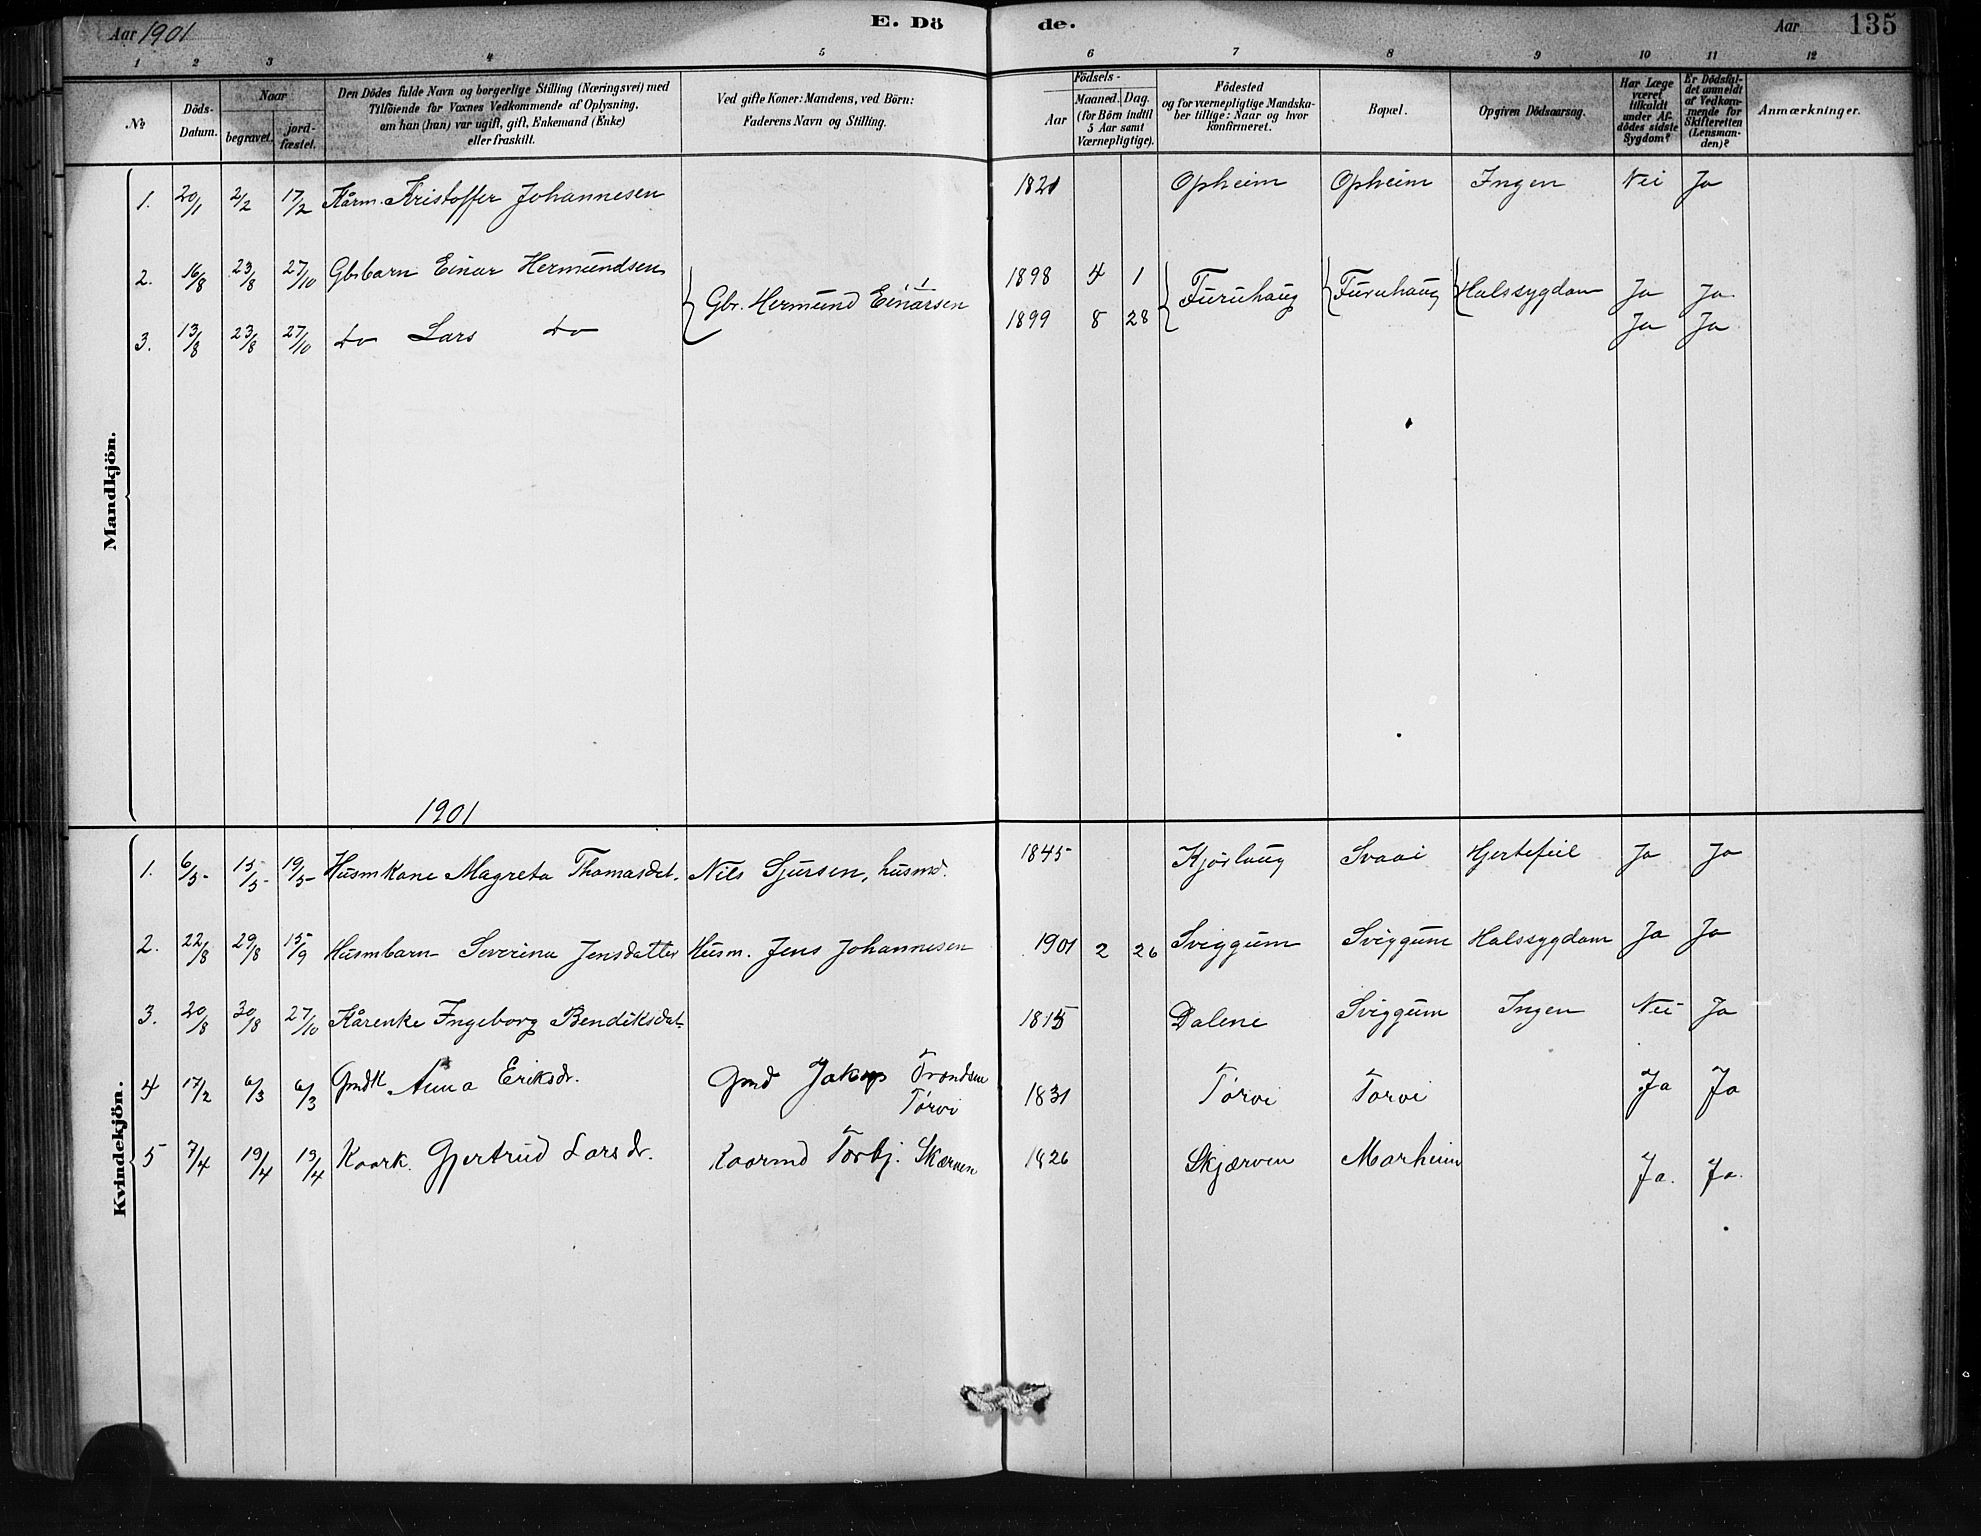 Aar 1901 E. Dö de. Aar 135
1 2 3 4 5 6 7 8 9 10 11 12
№
Döds-Datum.
Naar
begravet.
jord-fæstet.
Den Dödes fulde Navn og borgerlige Stilling (Næringsvei) med
Tilföiende for Voxnes Vedkommende af Oplysning,
om han (hun) var ugift, gift, Enkemand (Enke)
eller fraskilt.
Ved gifte Koner: Mandens, ved Börn:
Faderens Navn og Stilling.
Födsels-
Aar
Maaned. Dag.
(for Börn indtil
5 Aar samt
Værnepligtige).
Födested
og for værnepligtige Mandska-
ber tillige: Naar og hvor
konfirmeret.
Bopæl.
Opgiven Dödsaarsag.
Har Læge
været
tilkaldt
under Af-
dödes sidste
Sygdom?
Er Dödsfal-
det anmeldt
af Vedkom-
mende for
Skifteretten
(Lensman-
den)?
Anmærkninger.
Mandkjön.
1. 20/1 2/2 17/2 Kårm. Kristoffer Johannesen 1821 Opheim Opheim Ingen Nei Ja
2. 16/8 23/8 27/10 Gbrbarn Einar Hermundsen 1898 4 1
Gbr. Hermund Einarsen Furuhaug Furuhaug Halssygdom Ja Ja
3. 13/8 23/8 27/10 do Lars do 1899 8 28 Ja Ja
1901
Kvindekjön.
1. 6/5 15/5 19/5 Husmkone Magreta Thomasdat. Nils Sjursen, husmd. 1845 Kjörlaug Svaai Hjertefeil Ja Ja
2. 22/8 29/8 15/9 Husmbarn Severina Jensdatter Husm. Jens Johannesen 1901 2 26 Sviggum Sviggum Halssygdom Ja Ja
3. 20/8 30/8 27/10 Kårenke Ingeborg Bendiksdat 1815 Dalene Sviggum Ingen Nei Ja
4 17/2 6/3 6/3 Gmdk Anna Eriksdr. Gmd Jakop Trondsen
Törvi 1831 Törvi Torvi Ja Ja
5 7/4 19/4 19/4 Kaark. Gjertrud Larsdr. Kaarmd Torbj. Skærven 1826 Skjærven Marheim Ja. Ja.